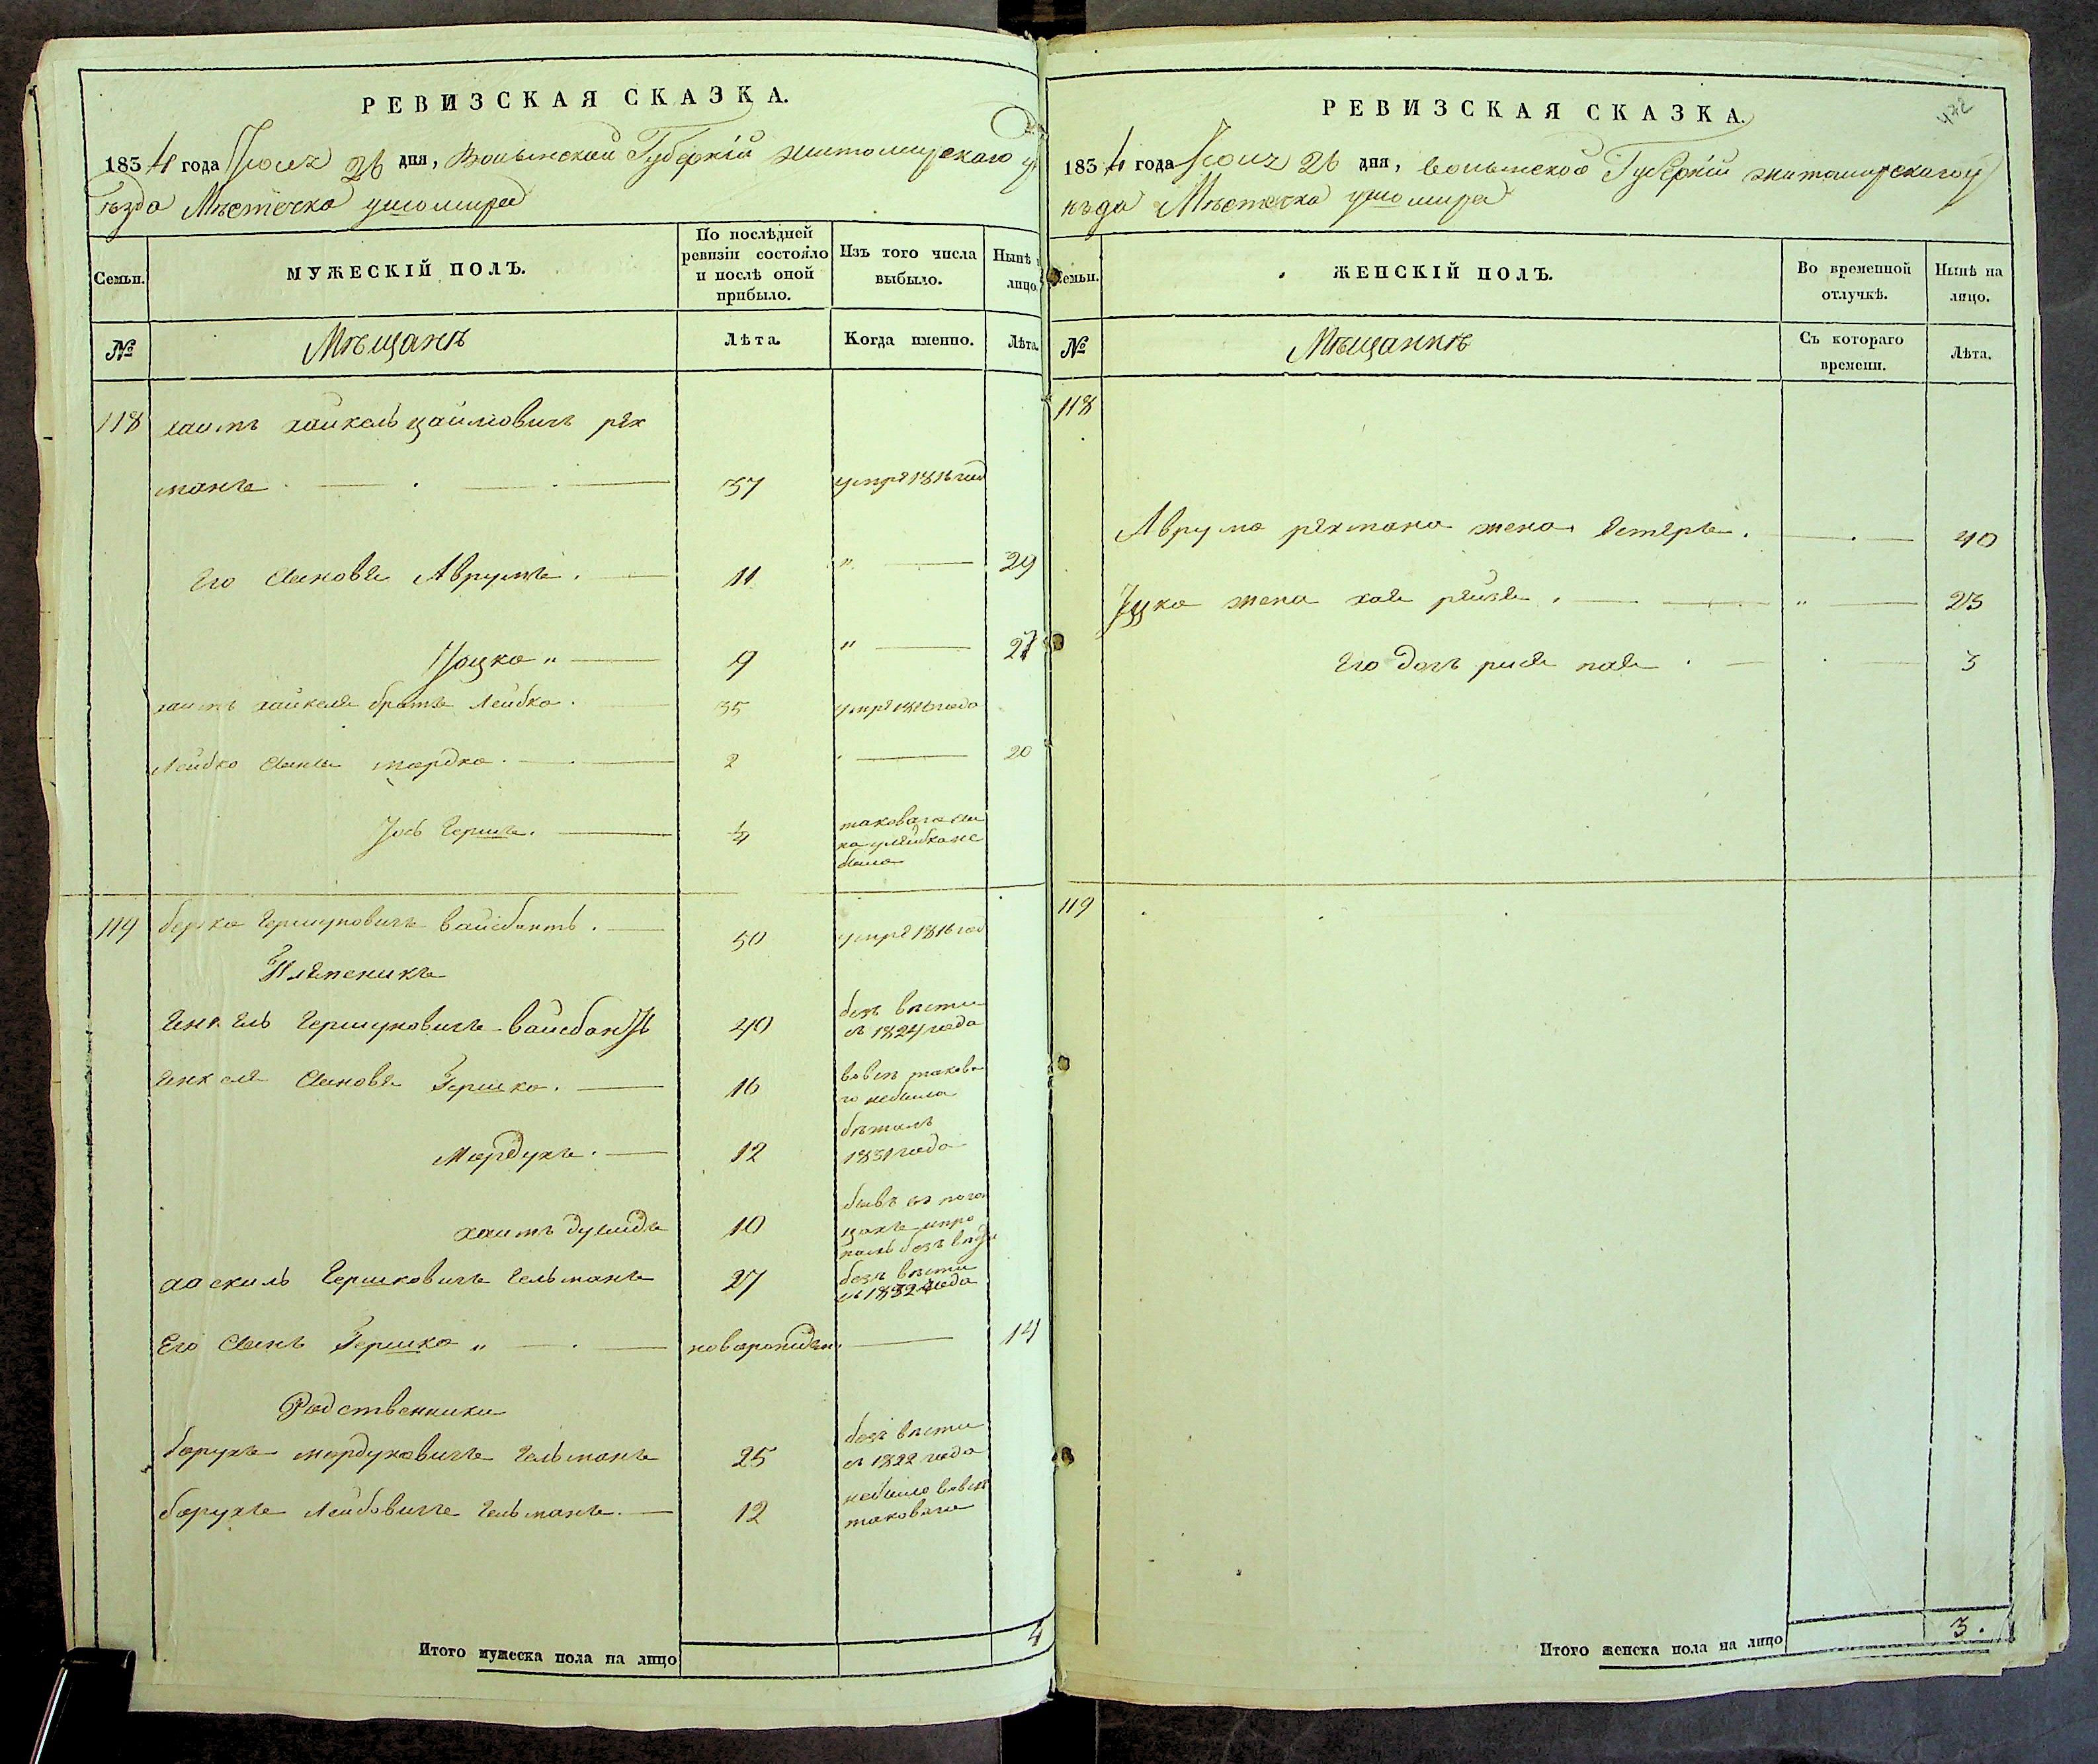 РЕВИЗСКАЯ СКАЗКА.
1834 года Июня 26 дня, Волынской Губерніи Житомирскаго у
ѣзда Мѣстечка ушомира
Семьи.
МУЖЕСКІЙ ПОЛЪ.
По послѣдней ревизіи состояло и послѣ оной прибыло.
Изъ того числа выбыло.
Нынѣ лицо.
№
Мѣщанъ
Лѣта.
Когда именно.
Лѣта.
118 хаимъ хайкель хаимовичъ рех
манъ 37 умре 1816 год
Его Синове Аврумъ. 11 " 29
Іоцко " 9 " 27
хаимъ хайкеля братъ Лейбко. 35 умре 1816 года
Лейбко Синъ мордко. 2 20
Іось Гершъ. 4 таковаго си
на улейбка не
было
119 берко Гершковичъ вайсбантъ. 50 умре 1816 год
Племеникъ
Енкель Гершковичъ вайсбантъ 40 безъ вести
съ 1824 года
Енкеля Синове Гершко. 16 вовсе таково
го небило
Мордухъ. 12 бежалъ
1831 года
хаимъ дувидъ 10
Гершковичъ Гельманъ 27 безъ вести
съ 1832 года
Его Синъ Гершко " новорожден. 14
Родственники
борухъ мордуховичъ Гельманъ 25 безъ вести
съ 1822 года
борухъ Лейбовичъ Гельманъ. 12 небило вовсе
таковаго
Итого мужеска пола на лицо 4
472
РЕВИЗСКАЯ СКАЗКА.
1834 года Июня 26 дня, волынской Губерніи житомирскаго у
ѣзда Мѣстечка ушомира
Семьи.
ЖЕНСКІЙ ПОЛЪ.
Во временной отлучкѣ.
Нынѣ на лицо.
№
Мѣщанкѣ
Съ котораго времени.
Лѣта.
118
Аврума рехмана жена Естеръ. 40
Іцка жена хая рейзя. " 23
Его дочъ рися пая. 3
119
Итого женска пола на лицо 3.